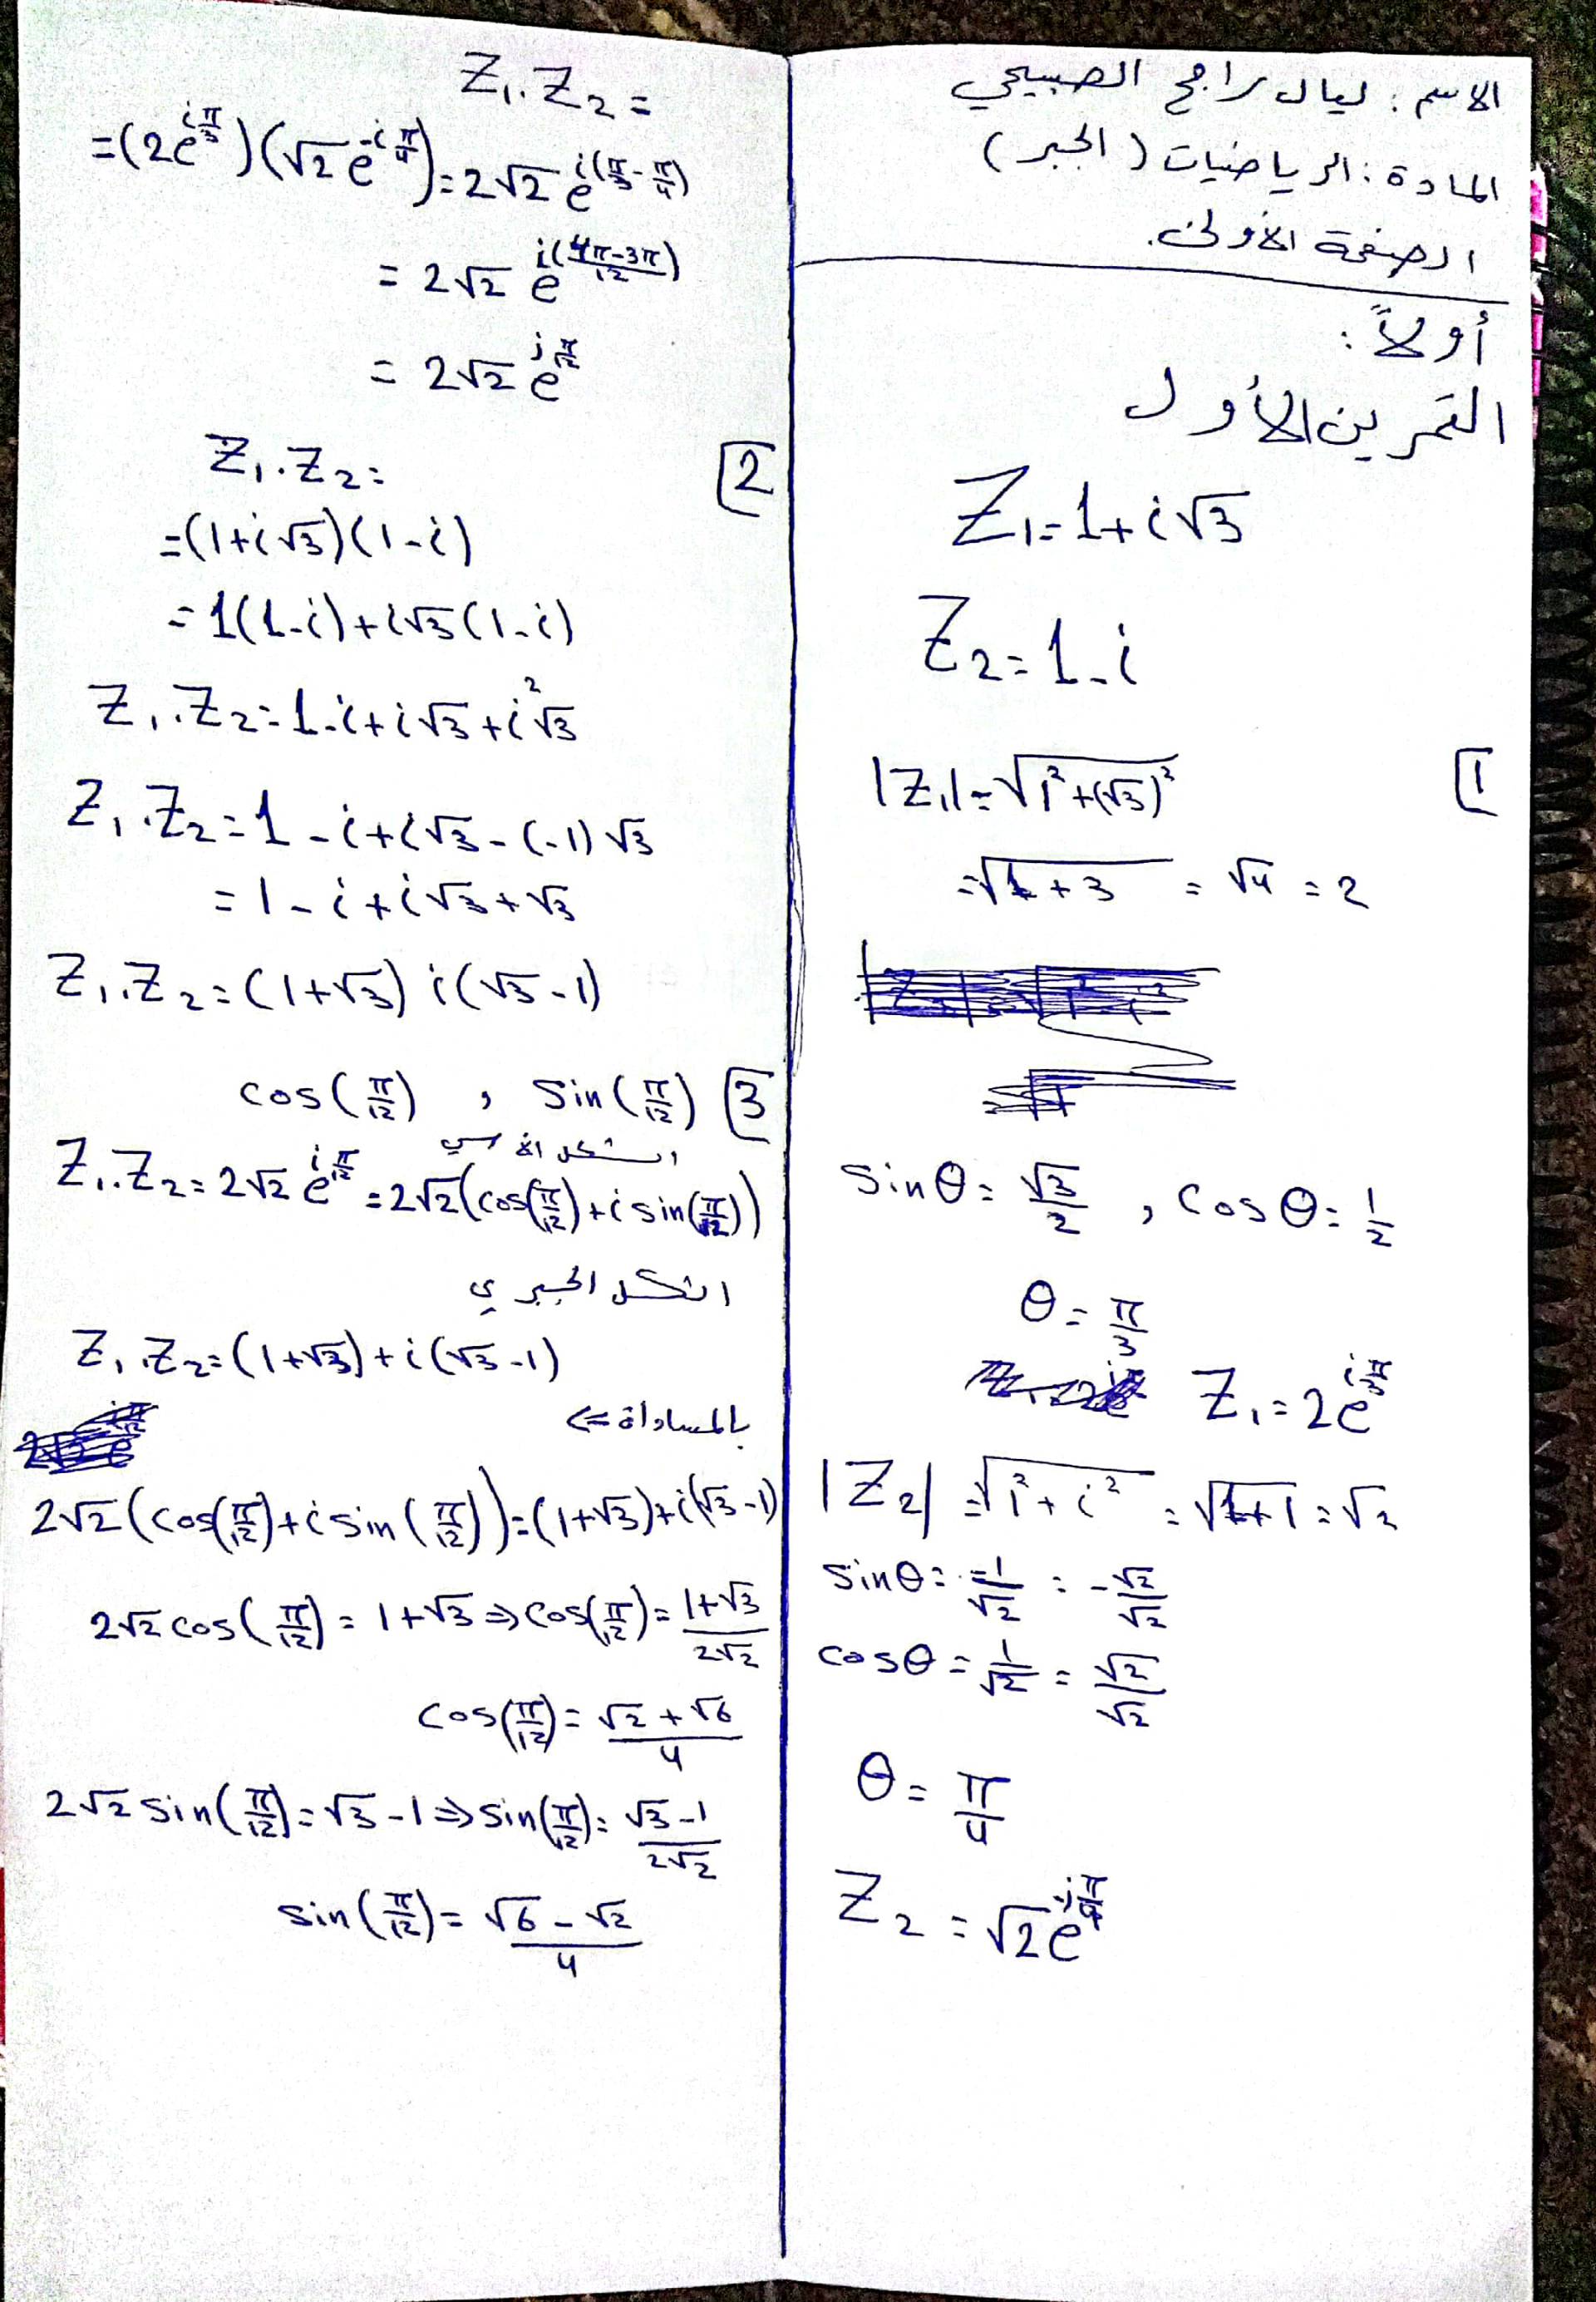 الاسم : ليال رامح الصبيحي
المادة : الرياضيات ( الجبر )
الصفحة الأولى.
أولاً :
التمرين الأول
Z₁ = 1 + i√3
Z₂ = 1 - i
1
|Z₁| = √(1² + (√3)²)
= √(1 + 3) = √4 = 2
sin θ = √3/2 , cos θ = 1/2
θ = π/3
Z₁ = 2e^(iπ/3)
|Z₂| = √(1² + i²) = √(1+1) = √2
sin θ = -1/√2 = -√2/√2
cos θ = 1/√2 = √2/√2
θ = π/4
Z₂ = √2 e^(-iπ/4)
Z₁.Z₂ =
= (2e^(iπ/3))(√2 e^(-iπ/4)) = 2√2 e^(i(π/3 - π/4))
= 2√2 e^(i(4π-3π)/12)
= 2√2 e^(iπ/12)
2
Z₁.Z₂ =
= (1+i√3)(1-i)
= 1(1-i)+i√3(1-i)
Z₁.Z₂ = 1-i+i√3+i²√3
Z₁.Z₂ = 1-i+i√3-(-1)√3
= 1-i+i√3+√3
Z₁.Z₂ = (1+√3) i(√3-1)
3 cos(π/12) , sin(π/12)
الشكل الأسي
Z₁.Z₂ = 2√2 e^(iπ/12) = 2√2(cos(π/12)+i sin(π/12))
الشكل الجبري
Z₁.Z₂ = (1+√3)+i(√3-1)
بالمساواة <=
2√2(cos(π/12)+i sin(π/12)) = (1+√3)+i(√3-1)
2√2 cos(π/12) = 1+√3 ⇒ cos(π/12) = (1+√3)/(2√2)
cos(π/12) = (√2+√6)/4
2√2 sin(π/12) = √3-1 ⇒ sin(π/12) = (√3-1)/(2√2)
sin(π/12) = (√6-√2)/4